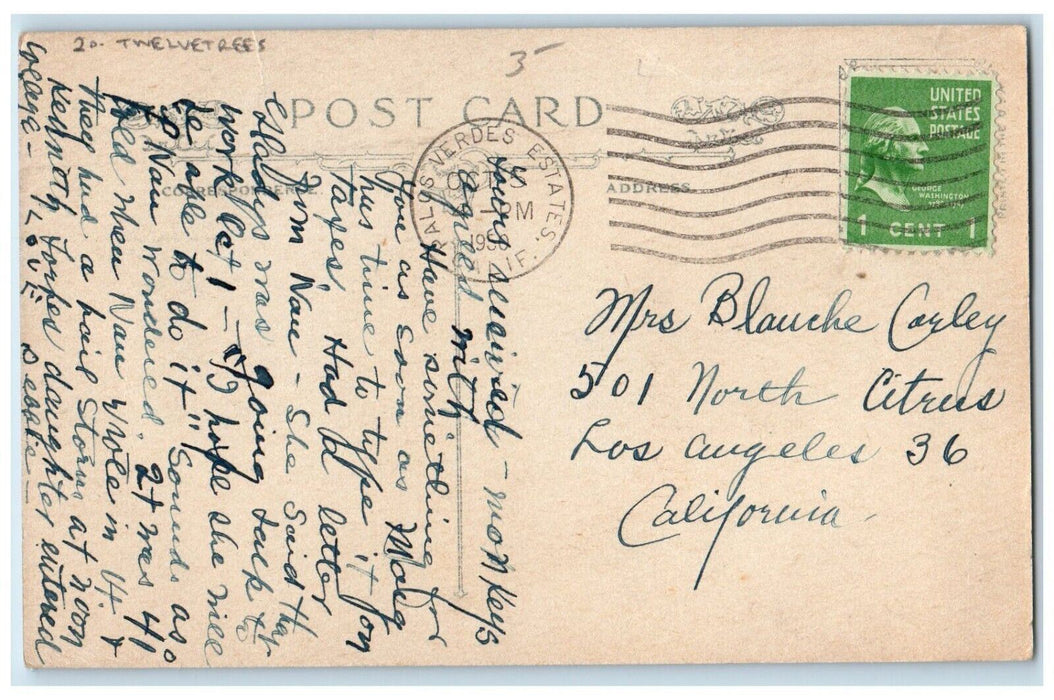 20. TWELVETREES
3
POST CARD
CORRESPONDENCE
ADDRESS
PALOS VERDES ESTATES, CALIF.
OCT
1 PM
UNITED
STATES
POSTAGE
GEORGE
WASHINGTON
1 CENT 1
Mrs Blanche Corley
501 North Citrus
Los Angeles 36
California
Yours received - monkeys
agreed with
you. Have something for
you as soon as Marg
has time to type it for
Tayes. Had a letter
from Nan - She said that
Gladys was going back to
work Oct 1 - "I hope she will
be able to do it" Sounds as
if Nan wondered. It was 41
there when Nan wrote in 4 &
they had a hail Storm at noon
Kenneth Forbes daughter entered
college - Love Bessie -